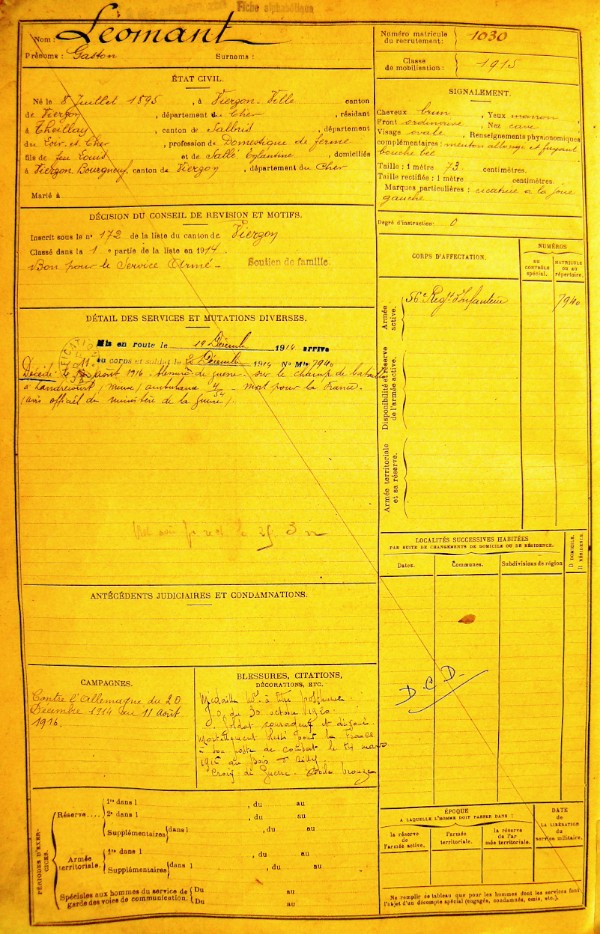 Fiche alphabétique
Nom : Leomant
Prénoms : Gaston Surnoms :
Numéro matricule du recrutement : 1030
Classe de mobilisation : 1915
ÉTAT CIVIL.
Né le 8 Juillet 1895, à Vierzon Ville canton
de Vierzon, département du Cher, résidant
à Theillay, canton de Salbris, département
du Loir et Cher, profession de Domestique de ferme
fils de feu Louis et de Sallé, domiciliés
à Vierzon Bourgneuf, canton de Vierzon, département du Cher
Marié à
SIGNALEMENT.
Cheveux brun, Yeux marron
Front ordinaire, Nez cave
Visage ovale, Renseignements physionomiques
complémentaires : menton allongé et fuyant
bouche
Taille : 1 mètre 73 centimètres.
Taille rectifiée : 1 mètre centimètres
Marques particulières : cicatrice à la joue
gauche
Degré d'instruction : 0
DÉCISION DU CONSEIL DE REVISION ET MOTIFS.
Inscrit sous le n° 172 de la liste du canton de Vierzon
Classé dans la 1e partie de la liste en 1914
Bon pour le Service Armé
Soutien de famille
DÉTAIL DES SERVICES ET MUTATIONS DIVERSES.
Mis en route le 19 Décemb 1914 arrivé
au corps et soldat le Décemb 1914 N° Mle 7940
Décédé le 11 août 1916 de guerre sur le champ de bataille
à Landrecourt (Meuse) ambulance mort pour la France.
(avis officiel du ministère de la guerre)
CORPS D'AFFECTATION.
NUMÉROS
AU CONTRÔLE spécial.
MATRICULE OU AU répertoire.
Armée active.
56e Régt d'Infanterie 7940
Disponibilité et réserve de l'armée active.
Armée territoriale et sa réserve.
LOCALITÉS SUCCESSIVES HABITÉES
PAR SUITE DE CHANGEMENTS DE DOMICILE OU DE RÉSIDENCE.
Dates.
Communes.
Subdivisions de région
D DOMICILE.
R RÉSIDENCE.
D.C.D.
ANTÉCÉDENTS JUDICIAIRES ET CONDAMNATIONS.
CAMPAGNES.
Contre l'Allemagne du 20
Décembre 1914 au 11 août
1916.
BLESSURES, CITATIONS,
DÉCORATIONS, ETC.
Médaille Mre à titre posthume
J.O. du 30 octobre 1920.
Soldat courageux et
Mortellement blessé pour la France
à son poste de combat le mars
1916 au Bois
Croix de Guerre. étoile bronze
PÉRIODES D'EXERCICES.
Réserve....
1re dans l , du au
2e dans l , du au
Supplémentaires dans l , du au
Armée territoriale.
1re dans l , du au
Supplémentaires dans l , du au
Spéciales aux hommes du service de garde des voies de communication.
Du au
Du au
ÉPOQUE
À LAQUELLE L'HOMME DOIT PASSER DANS :
la réserve de l'armée active.
l'armée territoriale.
la réserve de l'armée territoriale.
DATE
DE LA LIBÉRATION
du service militaire.
Ne remplir ce tableau que pour les hommes dont les services font
l'objet d'un décompte spécial (engagés, condamnés, omis, etc.).